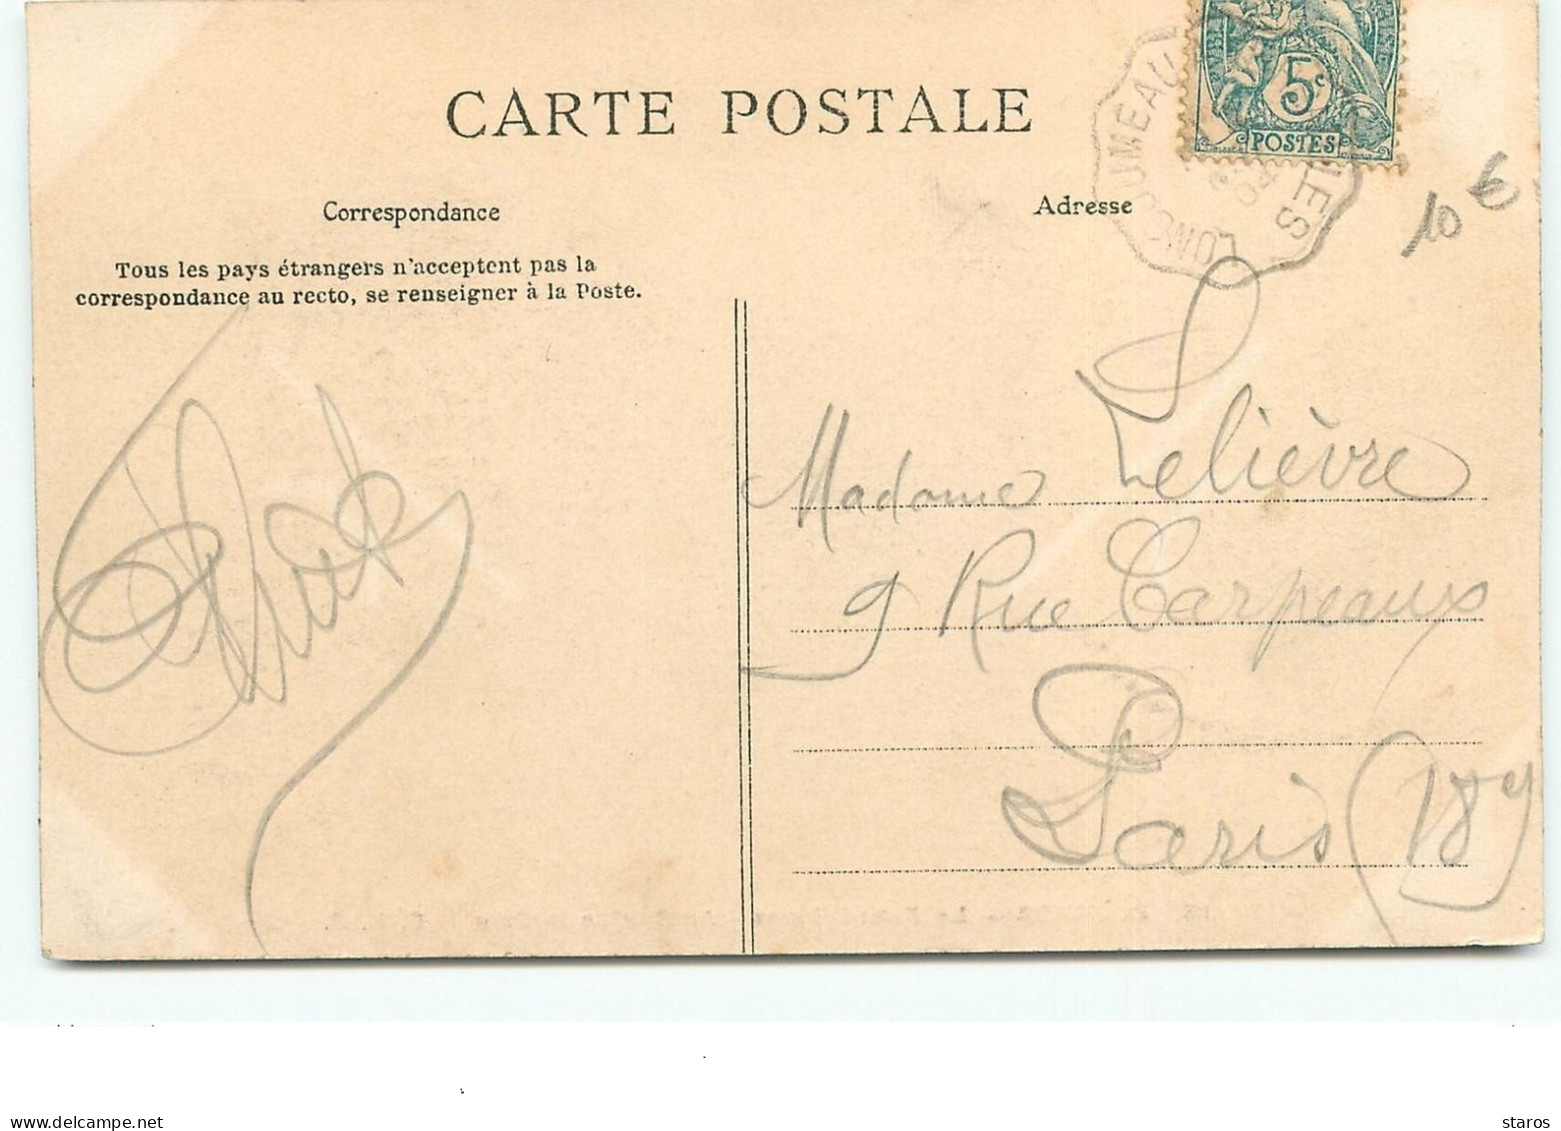 CARTE POSTALE
5c
POSTES
10 €
Correspondance
Adresse
Tous les pays étrangers n'acceptent pas la
correspondance au recto, se renseigner à la Poste.
Madame Lelièvre
9 Rue Carpeaux
Paris (18e)
www.delcampe.net
staros